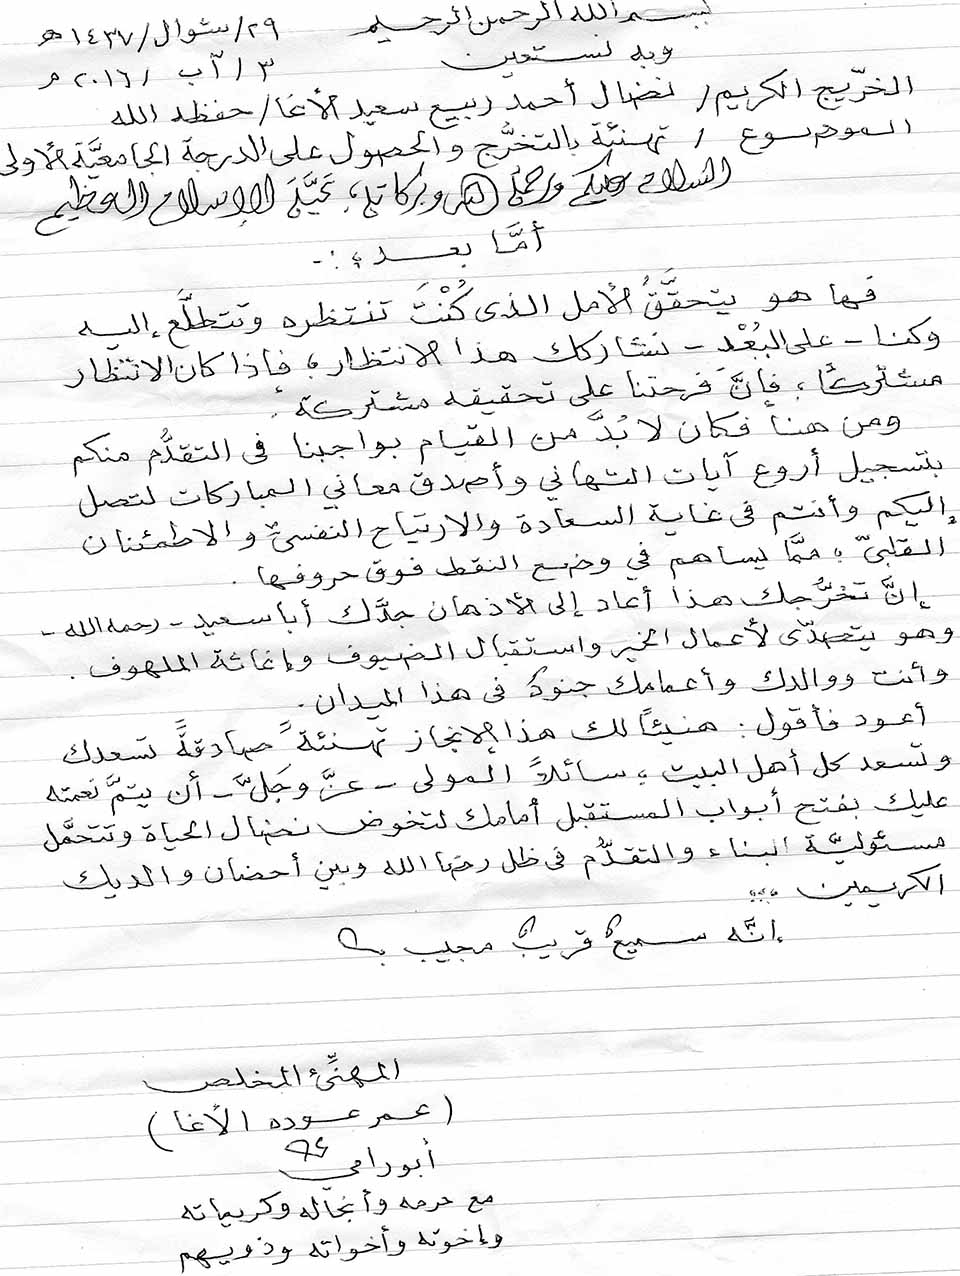 بسم الله الرحمن الرحيم ٢٩/شوال/١٤٣٧هـ
وبه نستعين ٣/آب/٢٠١٦م
الخرّيج الكريم/ نضال أحمد ربيع سعيد الأغا/ حفظه الله
الموضوع / تهنئة بالتخرُّج والحصول على الدرجة الجامعيَّة الأولى
السلام عليكم ورحمة الله وبركاته؛ تحيَّة الإسلام العظيم
أمَّا بعد؛:-
فها هو يتحقَّقُ الأمل الذى كُنْتَ تنتظره وتتطلَّع إليه
وكنا - على البُعْد - نشاركك هذا الانتظار؛ فإذا كان الانتظار
مشتركًا؛ فإنَّ فرحتنا على تحقيقه مشتركة.
ومن هنا فكان لا بُدَّ من القيام بواجبنا فى التقدُّم منكم
بتسجيل أروع آيات التهاني وأصدق معاني المباركات لتصل
إليكم وأنتم فى غاية السعادة والارتياح النفسيّ والاطمئنان
القلبيّ؛ ممَّا يساهم في وضع النقط فوق حروفها.
إنَّ تخرُّجك هذا أعاد إلى الأذهان جدَّك أبا سعيد - رحمه الله -
وهو يتصدّى لأعمال الخير واستقبال الضيوف وإغاثة الملهوف.
وأنت ووالدك وأعمامك جنودٌ فى هذا الميدان.
أعود فأقول: هنيئًا لك هذا الإنجاز تهنئةً صادقةً تسعدك
وتسعد كل أهل البيت؛ سائلاً المولى - عزَّ وجَلَّ - أن يتمَّ نعمته
عليك بفتح أبواب المستقبل أمامك لتخوض نضال الحياة وتتحمَّل
مسئوليَّة البناء والتقدُّم فى ظل رضا الله وبين أحضان والديك
الكريمين ...
إنَّه سميعٌ قريبٌ مجيب
المهنِّئ المخلص
(عمر عوده الأغا)
أبو رامي
مع حرمه وأنجاله وكريماته
وإخوته وأخواته وذويهم